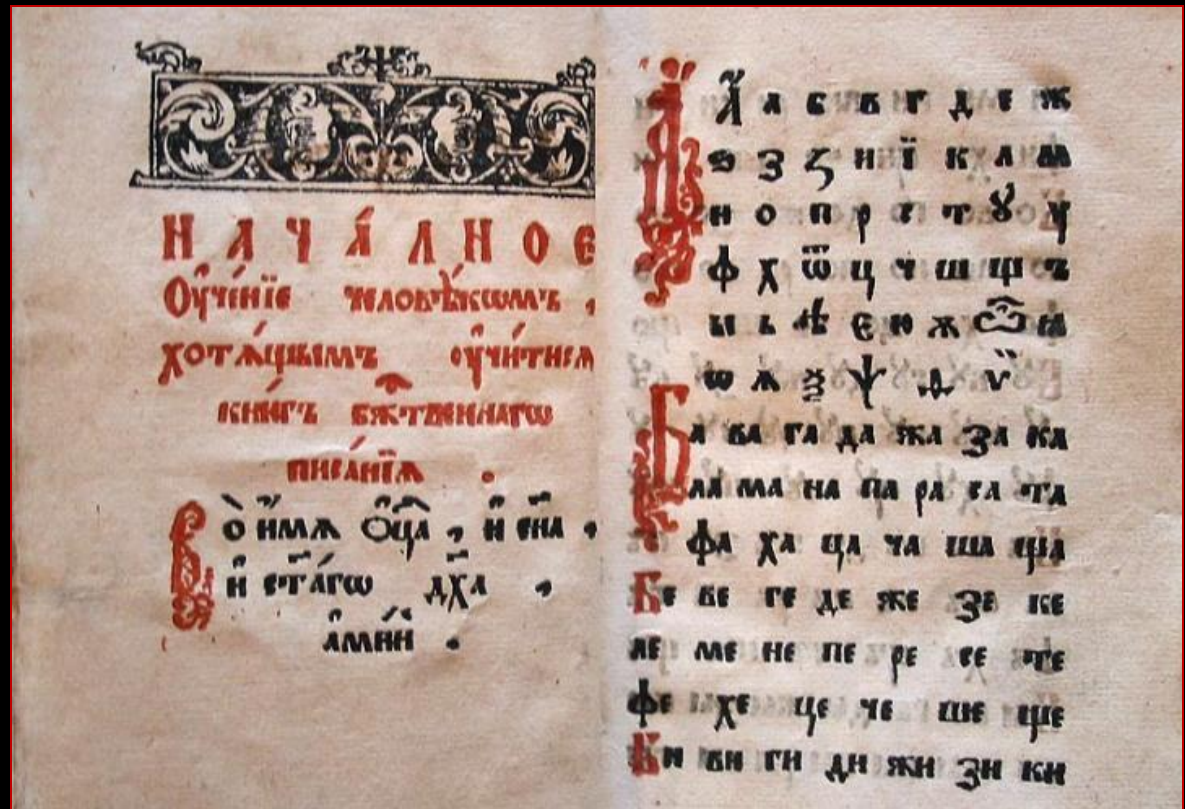 НАЧА́ЛНОЕ
Оу҆че́нїе человѣ́кѡмъ ,
хотѧ́щымъ оу҆чи́тисѧ
кни́гъ бж҃твеннагѡ
писа́нїѧ .
Во̀ и҆́мѧ Ѻ҆ц҃а̀ , и҆ сн҃а ,
и҆ ст҃а́гѡ дх҃а ,
а҆ми́нь .
А҆ а б в г д е ж
ѕ з ꙁ и ї к л м
н о п р с т ꙋ у
ф х ѿ ц ч ш щ ъ
ы ь ѣ є ю ж ѽ ꙗ
ѡ ѧ ѯ ѱ ѳ ѵ̈
Ба ва га да жа за ка
ла ма на па ра са та
фа ха ца ча ша ща
Бе ве ге де же зе ке
ле ме не пе ре се те
фе хе це че ше ще
Би ви ги ди жи зи ки